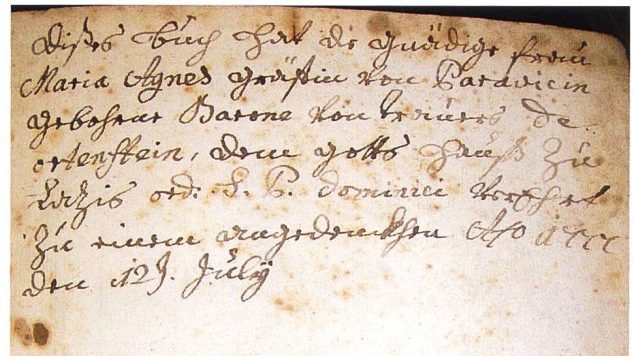 Dißes buch hat die gnädige frau
Maria Agnes gräffin von Paravicin
gebohrne Barone von travers de
ortenstein, dem gotts hauß Zu
Cazis ord: S. P. Dominici verehrt
Zu einem angedenckhen Ao
den 12 July